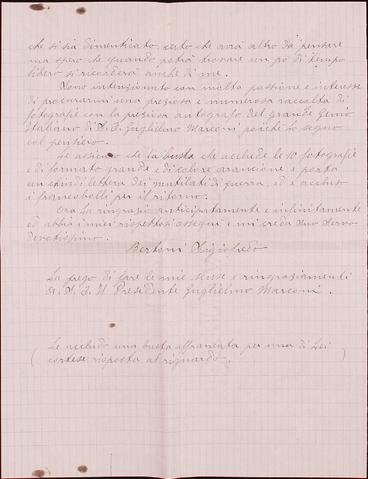 che si sia dimenticato, certo che avrà altro da pensare
ma spero che quando potrà trovare un pò di tempo
libero si ricorderà anche di me.
Sono intenzionato con molta passione e interesse
di procurarmi una preziosa e numerosa raccolta di
fotografie con la preziosa autografo del grande Genio
Italiano di S. E. Guglielmo Marconi perche lo sogno
col pensiero.
Le assicuro che la busta che acchiede le 10 fotografie
è di formato grande e di colore arancione e porta
un chiudi lettera dei mutilati di guerra, ed è acchiuso
i francobolli per il ritorno.
Ora La ringrazio anticipatamente e infinitamente
ed abbia i miei rispettosi ossequi e mi creda Suo Servo
devotissimo.
Bertoni
La prego di fare le mie scuse e ringraziamenti
a S. E. Il Presidente Guglielmo Marconi.
(Le acchiudo una busta affrancata per una di Lei
cortese risposta al riguardo.)